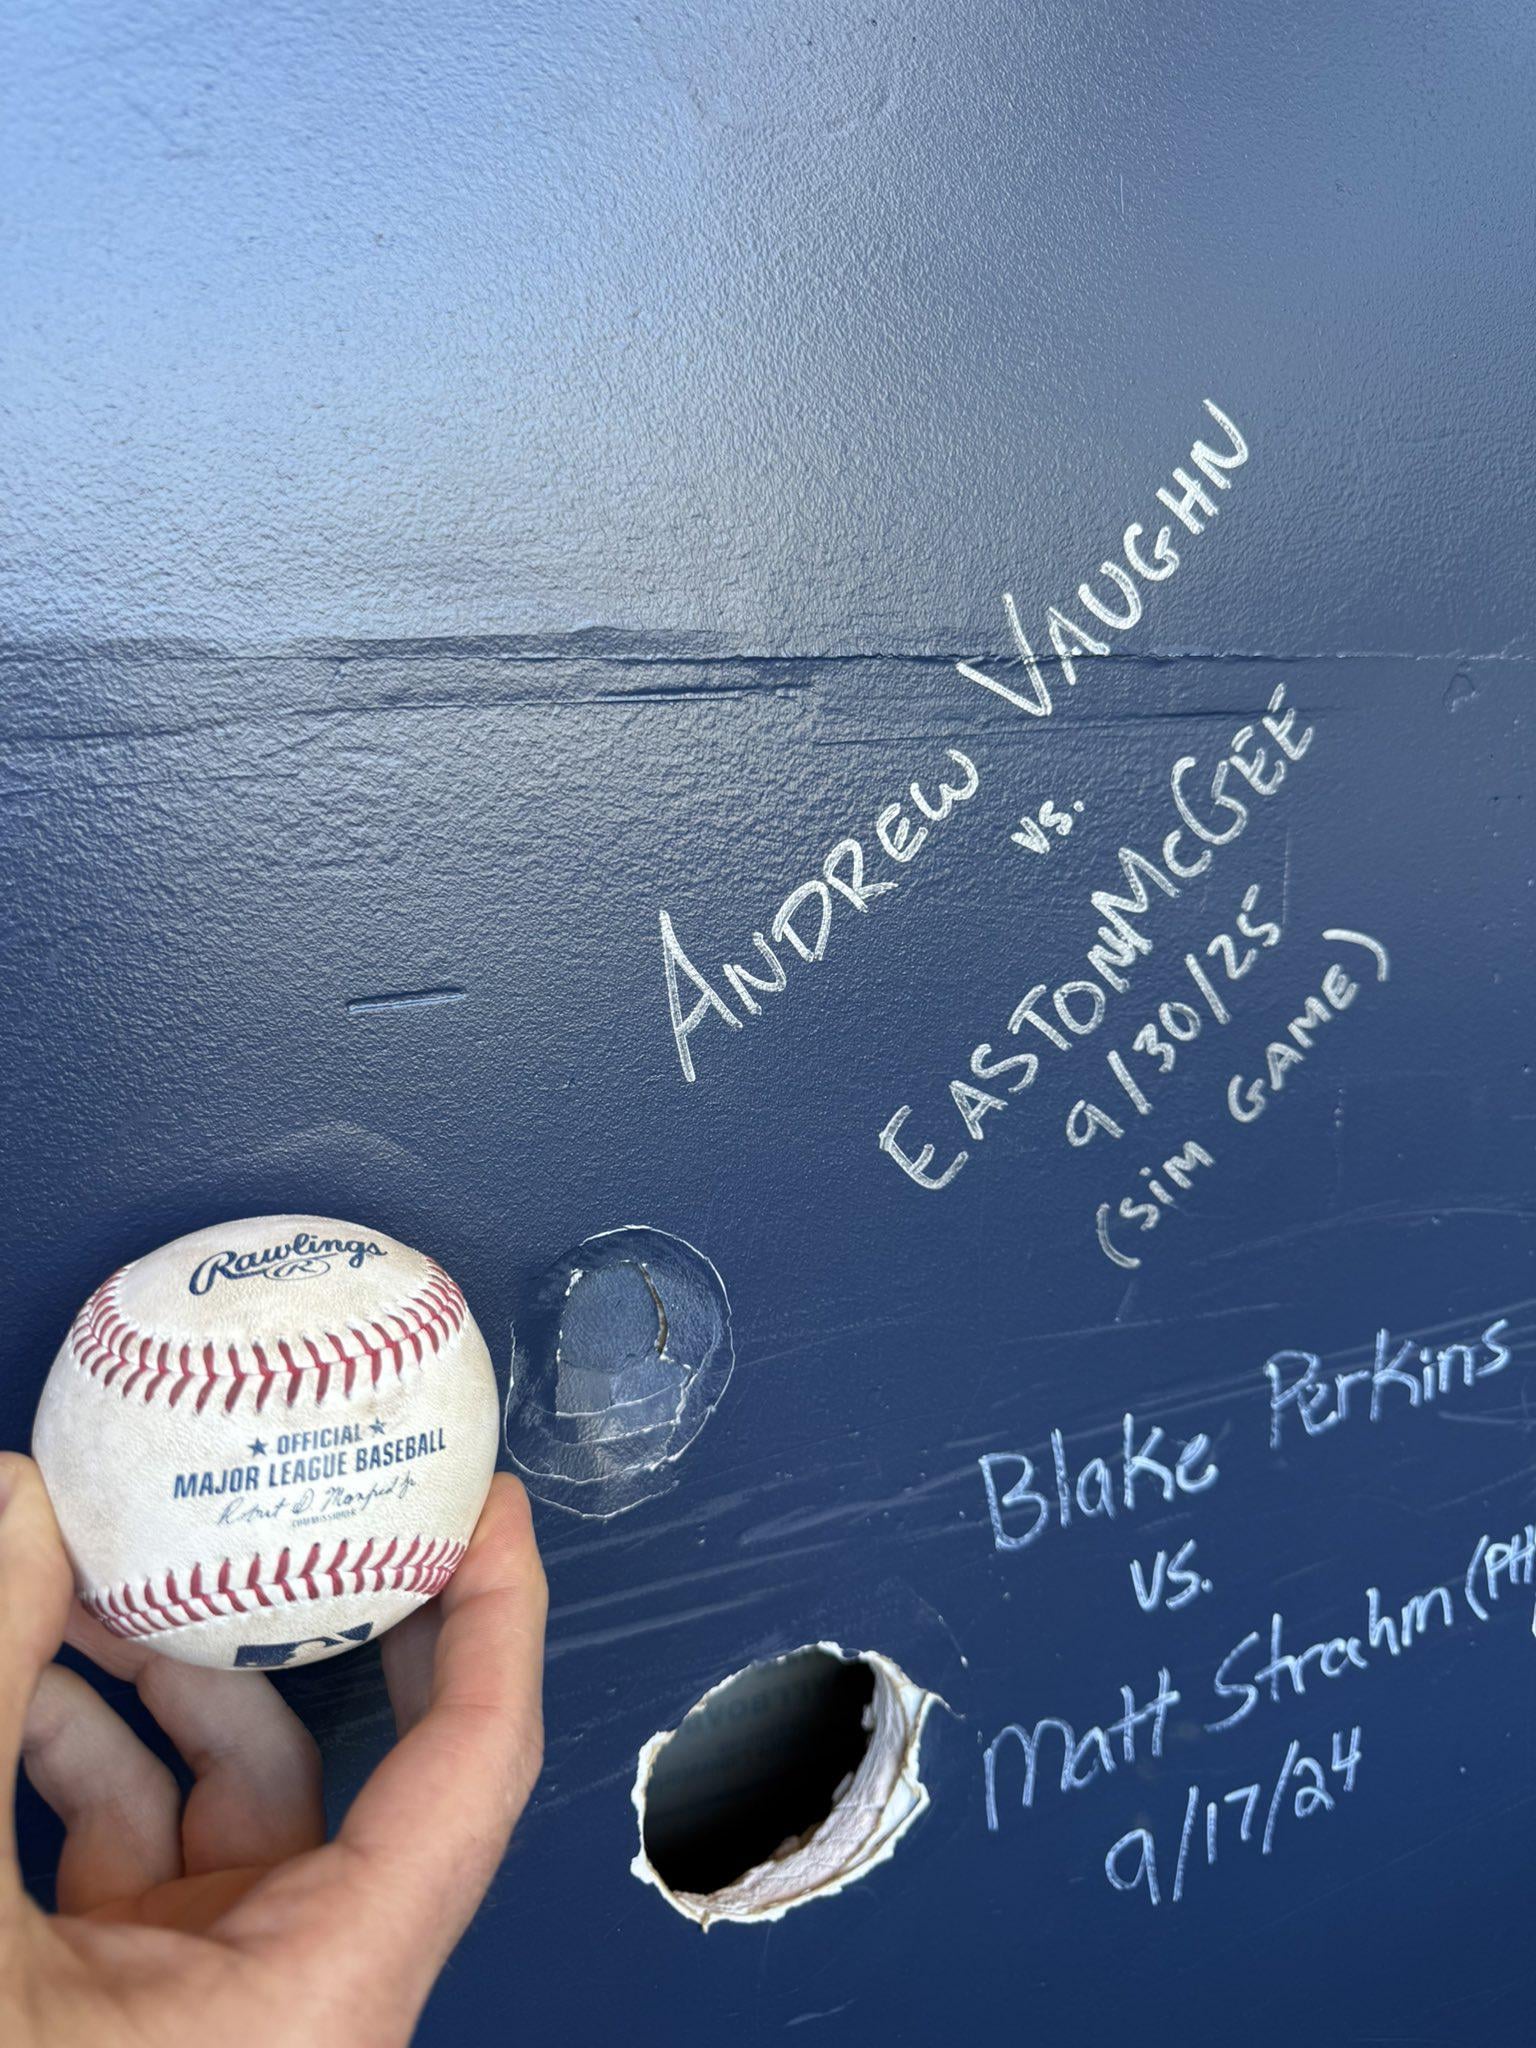 ANDREW VAUGHN
vs.
EASTON McGEE
9/30/25
(SIM GAME)
Rawlings
R
OFFICIAL
MAJOR LEAGUE BASEBALL
Robert D. Manfred Jr.
COMMISSIONER
Blake Perkins
vs.
Matt Strahm (PH
9/17/24